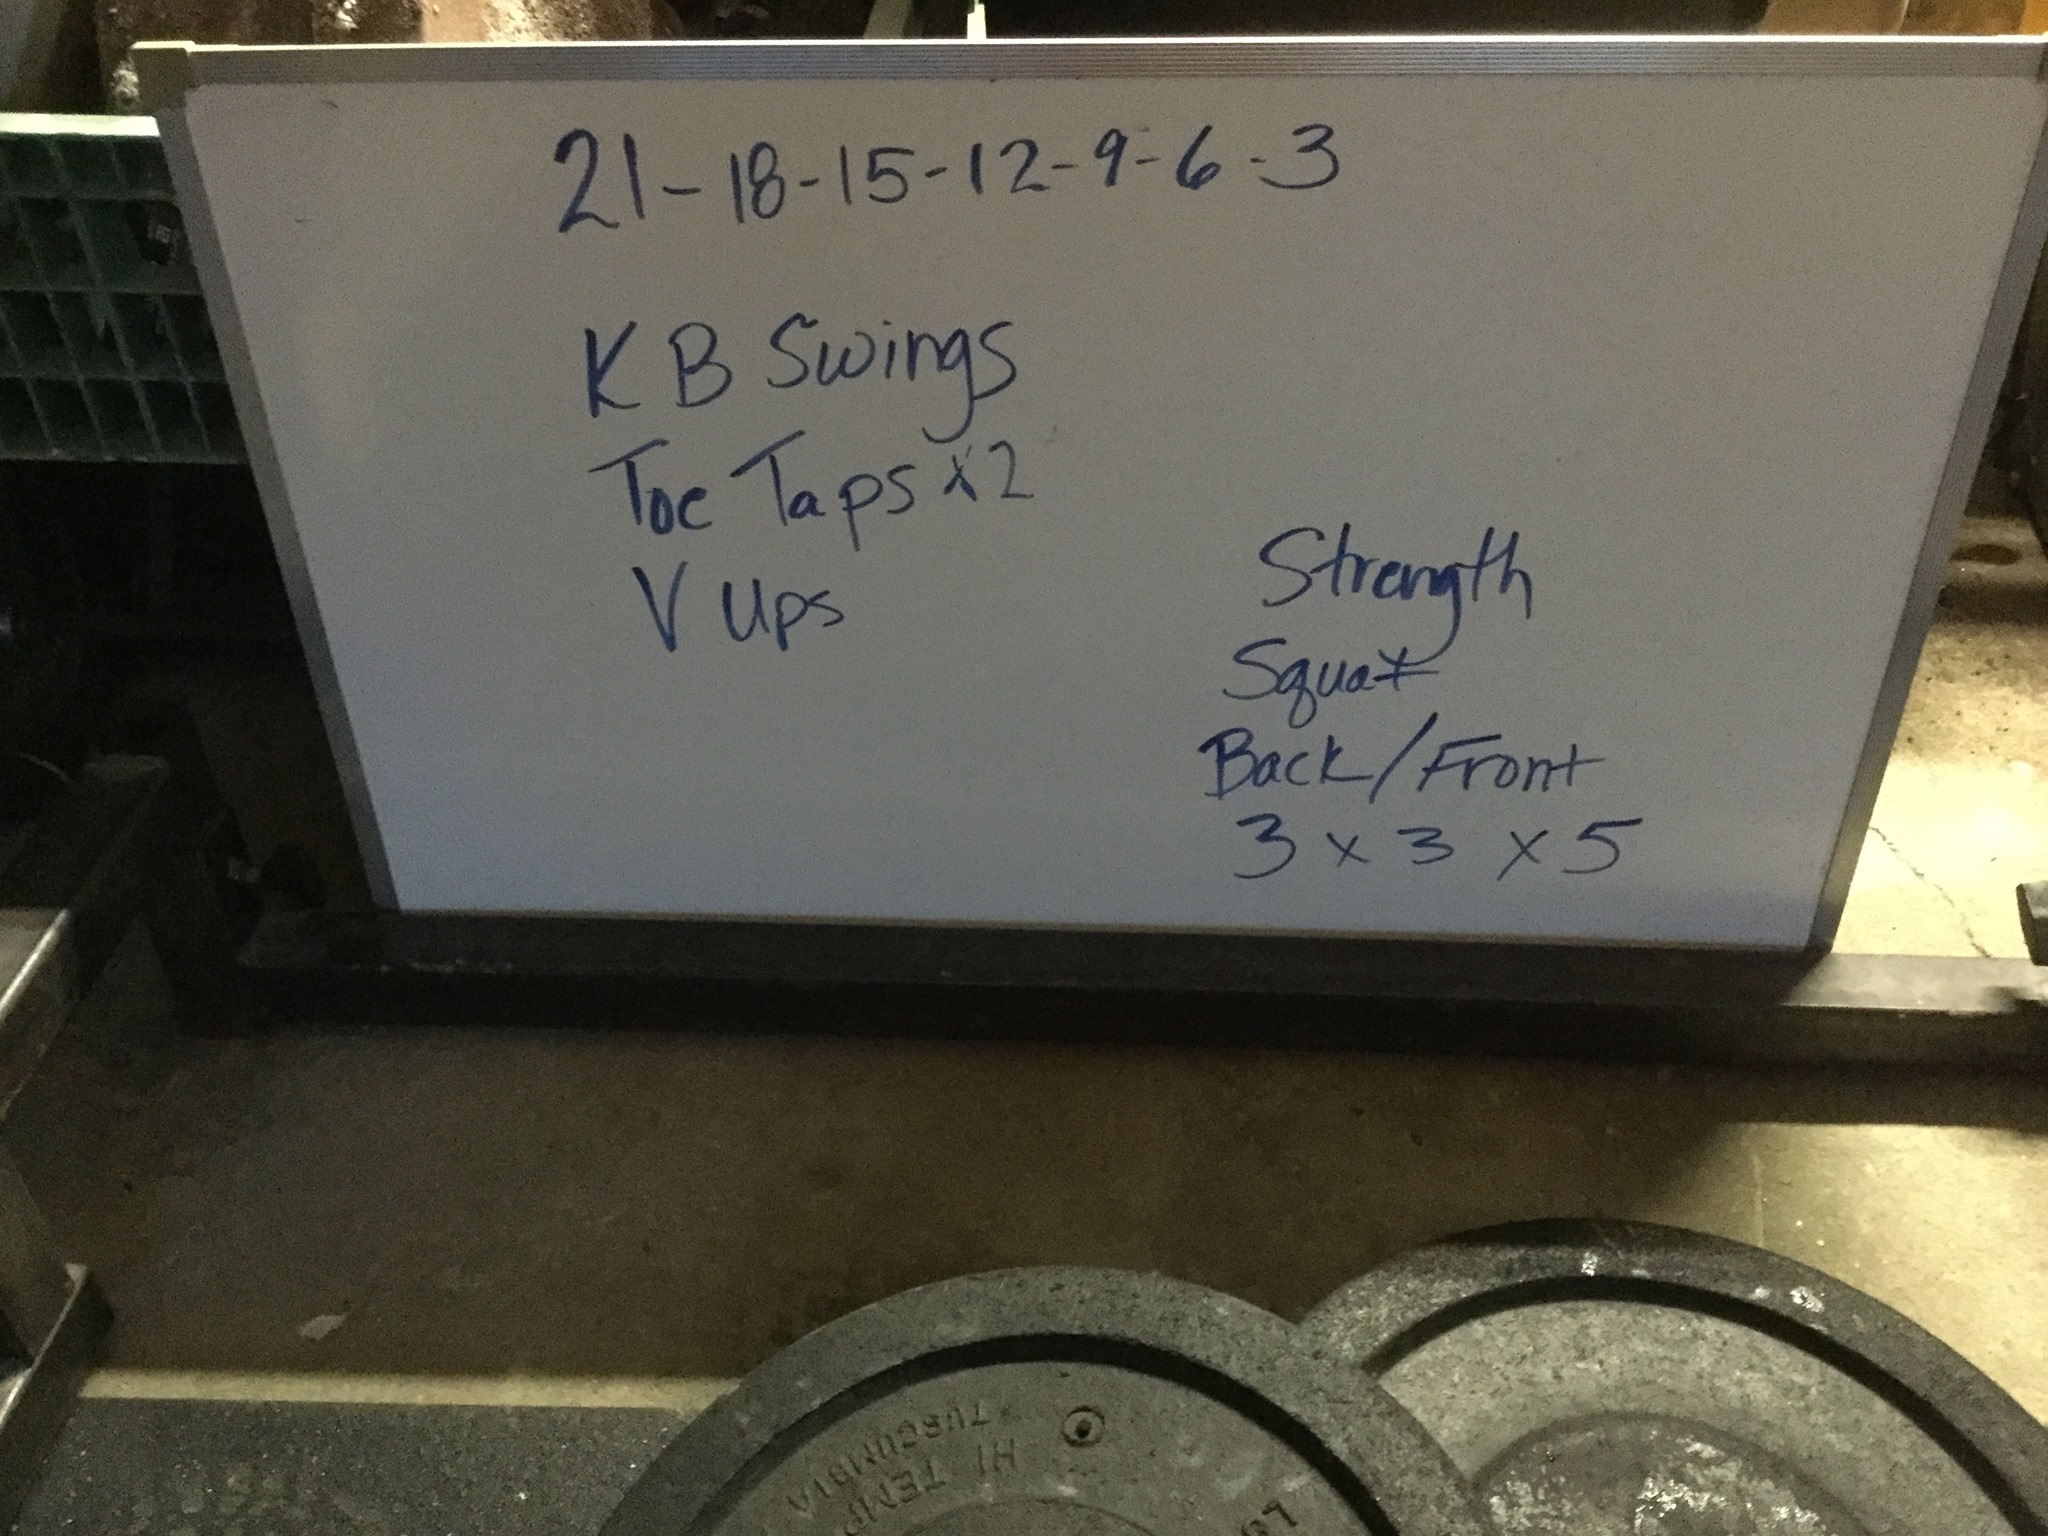 21-18-15-12-9-6-3
KB Swings
Toe Taps x2
V Ups
Strength
Squat
Back/Front
3 x 3 x 5
HI TEMP
TUSCUMBIA
LB